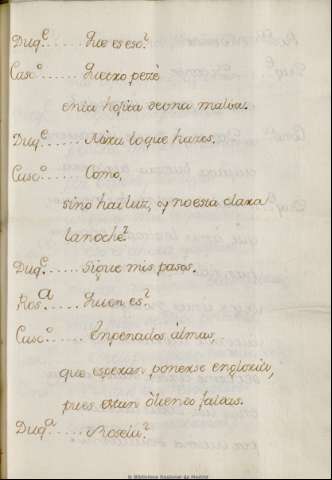 Duq.e ...... Que es eso?
Cusc.o ...... Quexo pezè
en la hojica de una malva.
Duq.e ...... Mira lo que haces.
Cusc.o ...... Como,
sino hai luz, oy no està clara
la noche?
Duq.e ...... Sigue mis pasos.
Ros.a ...... Quien es?
Cusc.o ...... Enpenados àlmas,
que esperan ponerse en gloria,
pues estan
Duq.e ...... Roselu?
© Biblioteca Regional de Madrid